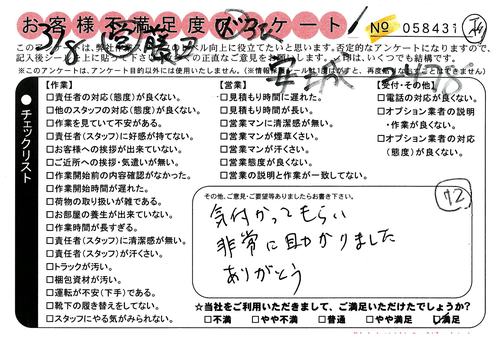 お客様不満足度アンケート!
No 058431
3/8
このアンケートは、弊社サービスのレベル向上に役立てたいと思います。否定的なアンケートになりますので、
記入後シールを上に貼って
の正直なご意見をお聞
印は、いくつでも結構です。
※このアンケートは、アンケート目的以外には使用いたしません。
チェックリスト
【作業】
□責任者の対応(態度)が良くない。
□他のスタッフの対応(態度)が良くない。
□作業を見ていて不安がある。
□責任者(スタッフ)に好感が持てない。
□お客様への挨拶が出来ていない。
□ご近所への挨拶・気遣いが無い。
□作業開始前の内容確認がなかった。
□作業開始時間が遅れた。
□荷物の取り扱いが雑である。
□お部屋の養生が出来ていない。
□作業時間が長すぎる。
□責任者(スタッフ)に清潔感が無い。
□責任者(スタッフ)が汗くさい。
□トラックが汚い。
□梱包資材が汚い。
□運転が不安(下手)である。
□靴下の履き替えをしてない。
□スタッフにやる気がみられない。
【営業】
□見積もり時間に遅れた。
□見積もり時間が長い。
□営業マンに清潔感が無い。
□営業マンが煙草くさい。
□営業マンが汗くさい。
□営業態度が良くない。
□営業の説明と作業が一致してない。
【受付・その他】
□電話の対応が良くない。
□オプション業者の説明
・作業が良くない。
□オプション業者の対応
(態度)が良くない。
その他、ご意見・ご要望等ありましたらお書き下さい。
12
気付かってもらい
非常に助かりました
ありがとう
☆当社をご利用いただきまして、ご満足いただけたでしょうか?
□不満 □やや不満 □普通 □やや満足 □満足